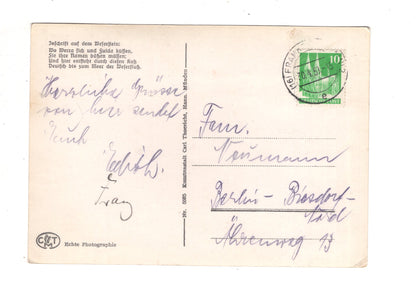 Inschrift auf dem Weserstein:
Wo Werra sich und Fulda küssen
Sie ihre Namen büßen müssen
Und hier entsteht durch diesen Kuß
Deutsch bis zum Meer der Weserfluß.
Herzliche Grüsse
von hier sendet
Euch
Edith.
Echte Photographie
Kunstanstalt Carl Thoericht, Hann. Münden
10
(16) FRANK
e
Fam.
Naumann
Berlin - Biesdorf-
Süd
Ährenweg 13